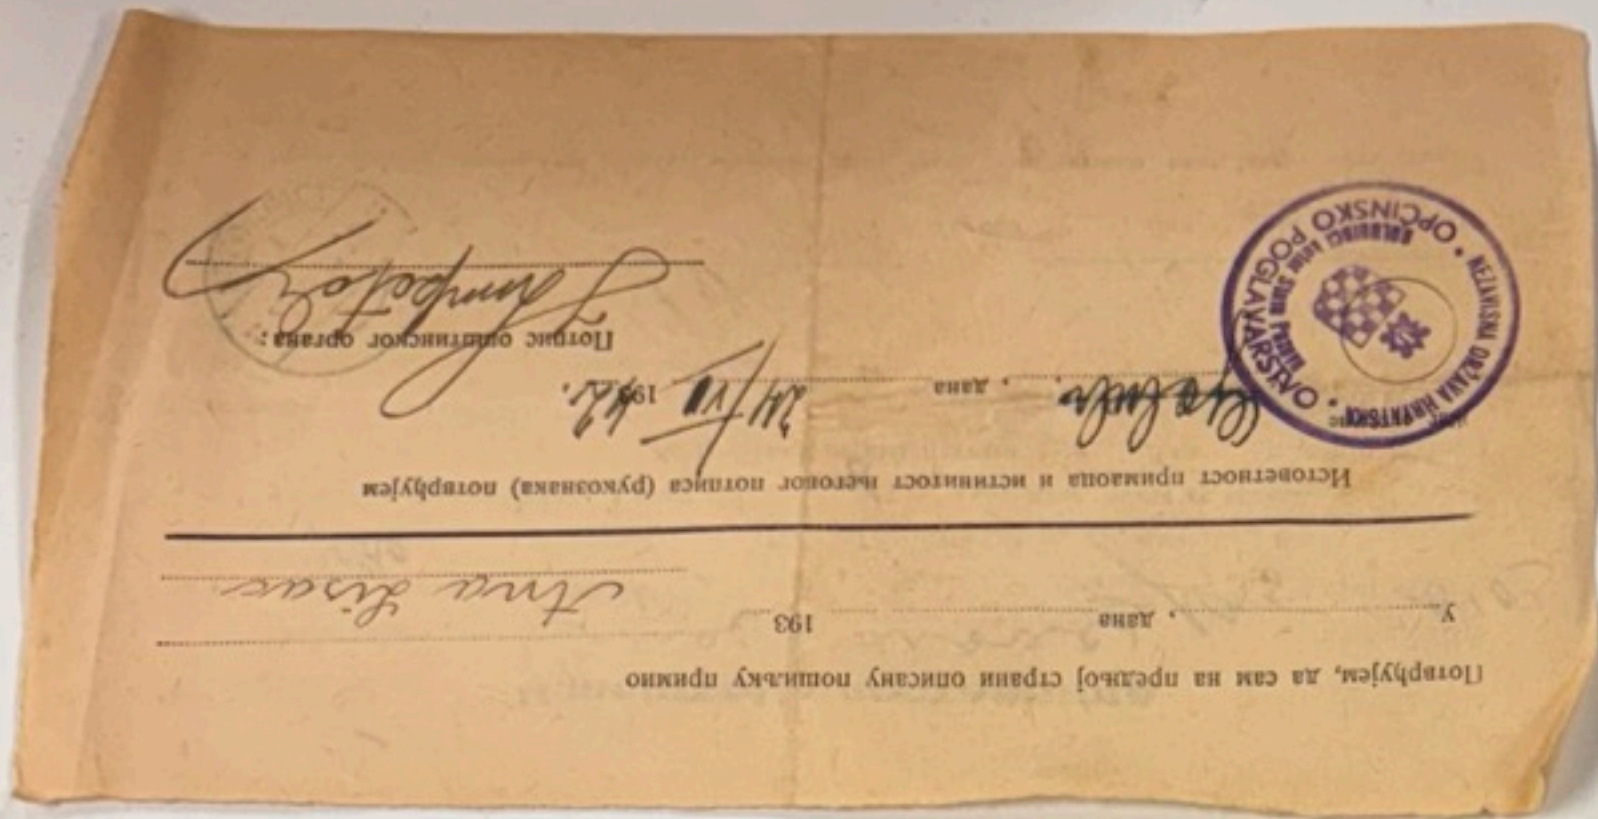 Потврђујем, да сам на предњој страни описану пошиљку примио
У , дана 193
Ana Lisac
Истоветност примаоца и истинитост његовог потписа (рукознака) потврђујем
, дана 24/VII 1942.
Потпис општинског органа:
NEZAVISNA DRŽAVA HRVATSKA
• OPĆINSKO POGLAVARSTVO •